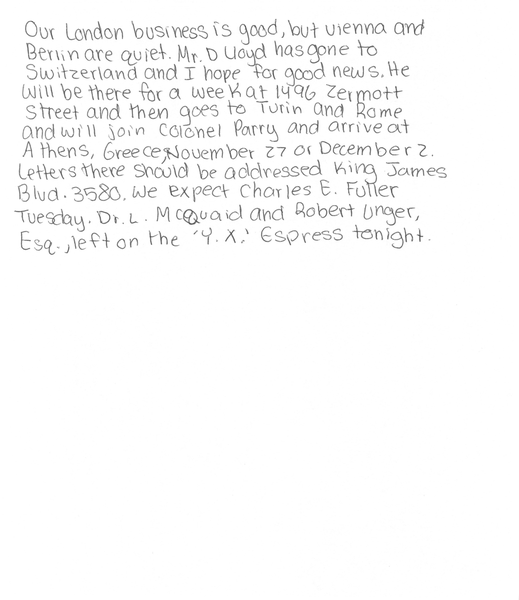 Our London business is good, but vienna and
Berlin are quiet. Mr. D Lloyd has gone to
Switzerland and I hope for good news. He
will be there for a week at 1496 Zermott
Street and then goes to Turin and Rome
and will join Colonel Parry and arrive at
Athens, Greece, November 27 or December 2.
Letters there should be addressed King James
Blvd. 3580. We expect Charles E. Fuller
Tuesday. Dr. L. McQuaid and Robert Unger,
Esq., left on the 'Y. X.' Espress tonight.